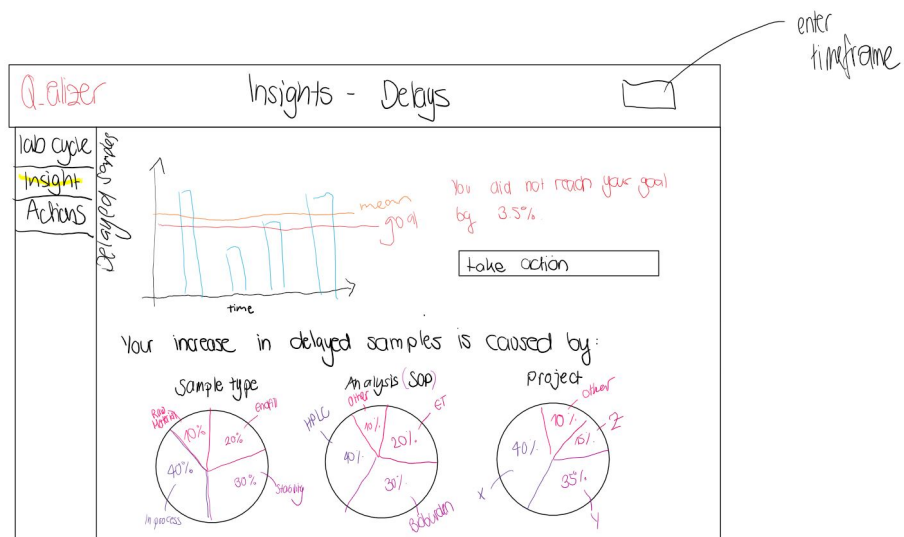 enter
timeframe
Q-alizer
Insights - Delays
lab cycle
Insight
Actions
Delayed samples
mean
goal
time
You did not reach your goal
by 3.5%
take action
Your increase in delayed samples is caused by:
Sample type
Raw
Material
10%
20%
40%
30%
Stability
In process
Analysis (SOP)
HPLC
Other
ET
10%
20%
40%
30%
Bioburden
Project
Other
10%
Z
15%
40%
35%
X
Y